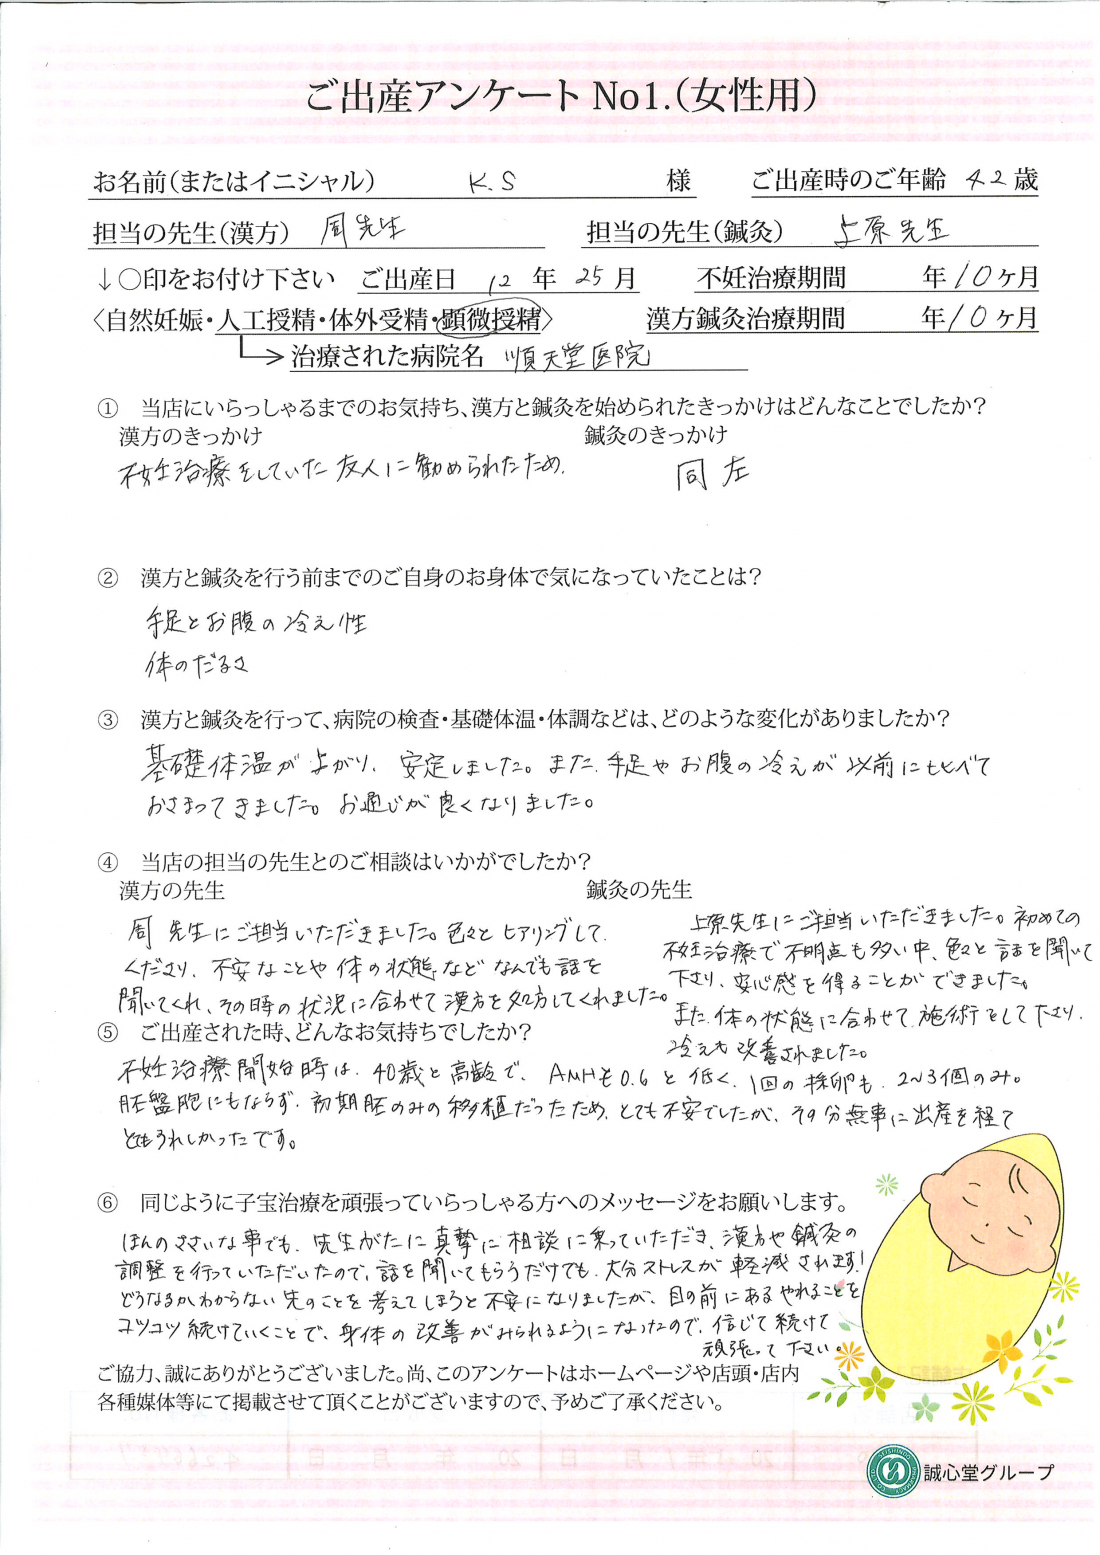 ご出産アンケート No1.（女性用）
お名前（またはイニシャル） K.S 様 ご出産時のご年齢 42歳
担当の先生（漢方） 周先生 担当の先生（鍼灸） 上原先生
↓○印をお付け下さい ご出産日 12 年 25 月 不妊治療期間 年10ヶ月
〈自然妊娠・人工授精・体外受精・顕微授精〉 漢方鍼灸治療期間 年10ヶ月
治療された病院名 順天堂医院
① 当店にいらっしゃるまでのお気持ち、漢方と鍼灸を始められたきっかけはどんなことでしたか？
漢方のきっかけ 鍼灸のきっかけ
不妊治療をしていた友人に勧められたため. 同左
② 漢方と鍼灸を行う前までのご自身のお身体で気になっていたことは？
手足とお腹の冷え性
体のだるさ
③ 漢方と鍼灸を行って、病院の検査・基礎体温・体調などは、どのような変化がありましたか？
基礎体温が上がり、安定しました。また、手足やお腹の冷えが以前にも比べて
おさまってきました。お通じが良くなりました。
④ 当店の担当の先生とのご相談はいかがでしたか？
漢方の先生
周先生にご担当いただきました。色々とヒアリングして
くださり、不安なことや体の状態などなんでも話を
聞いてくれ、その時の状況に合わせて漢方を処方してくれました。
鍼灸の先生
上原先生にご担当いただきました。初めての
不妊治療で不明点も多い中、色々と話を聞いて
下さり、安心感を得ることができました。
また、体の状態に合わせて施術をして下さり、
冷えも改善されました。
⑤ ご出産された時、どんなお気持ちでしたか？
不妊治療開始時は、40歳と高齢で、AMHも0.6と低く、1回の採卵も、2~3個のみ。
胚盤胞にもならず、初期胚のみの移植だったため、とても不安でしたが、その分無事に出産を経て
とてもうれしかったです。
⑥ 同じように子宝治療を頑張っていらっしゃる方へのメッセージをお願いします。
ほんのささいな事でも、先生がたに真摯に相談に乗っていただき、漢方や鍼灸の
調整を行っていただいたので、話を聞いてもらうだけでも、大分ストレスが軽減されます!
どうなるかわからない先のことを考えてしまうと不安になりましたが、目の前にあるやれることを
コツコツ続けていくことで、身体の改善がみられるようになったので、信じて続けて
頑張って下さい。
ご協力、誠にありがとうございました。尚、このアンケートはホームページや店頭・店内
各種媒体等にて掲載させて頂くことがございますので、予めご了承ください。
誠心堂グループ